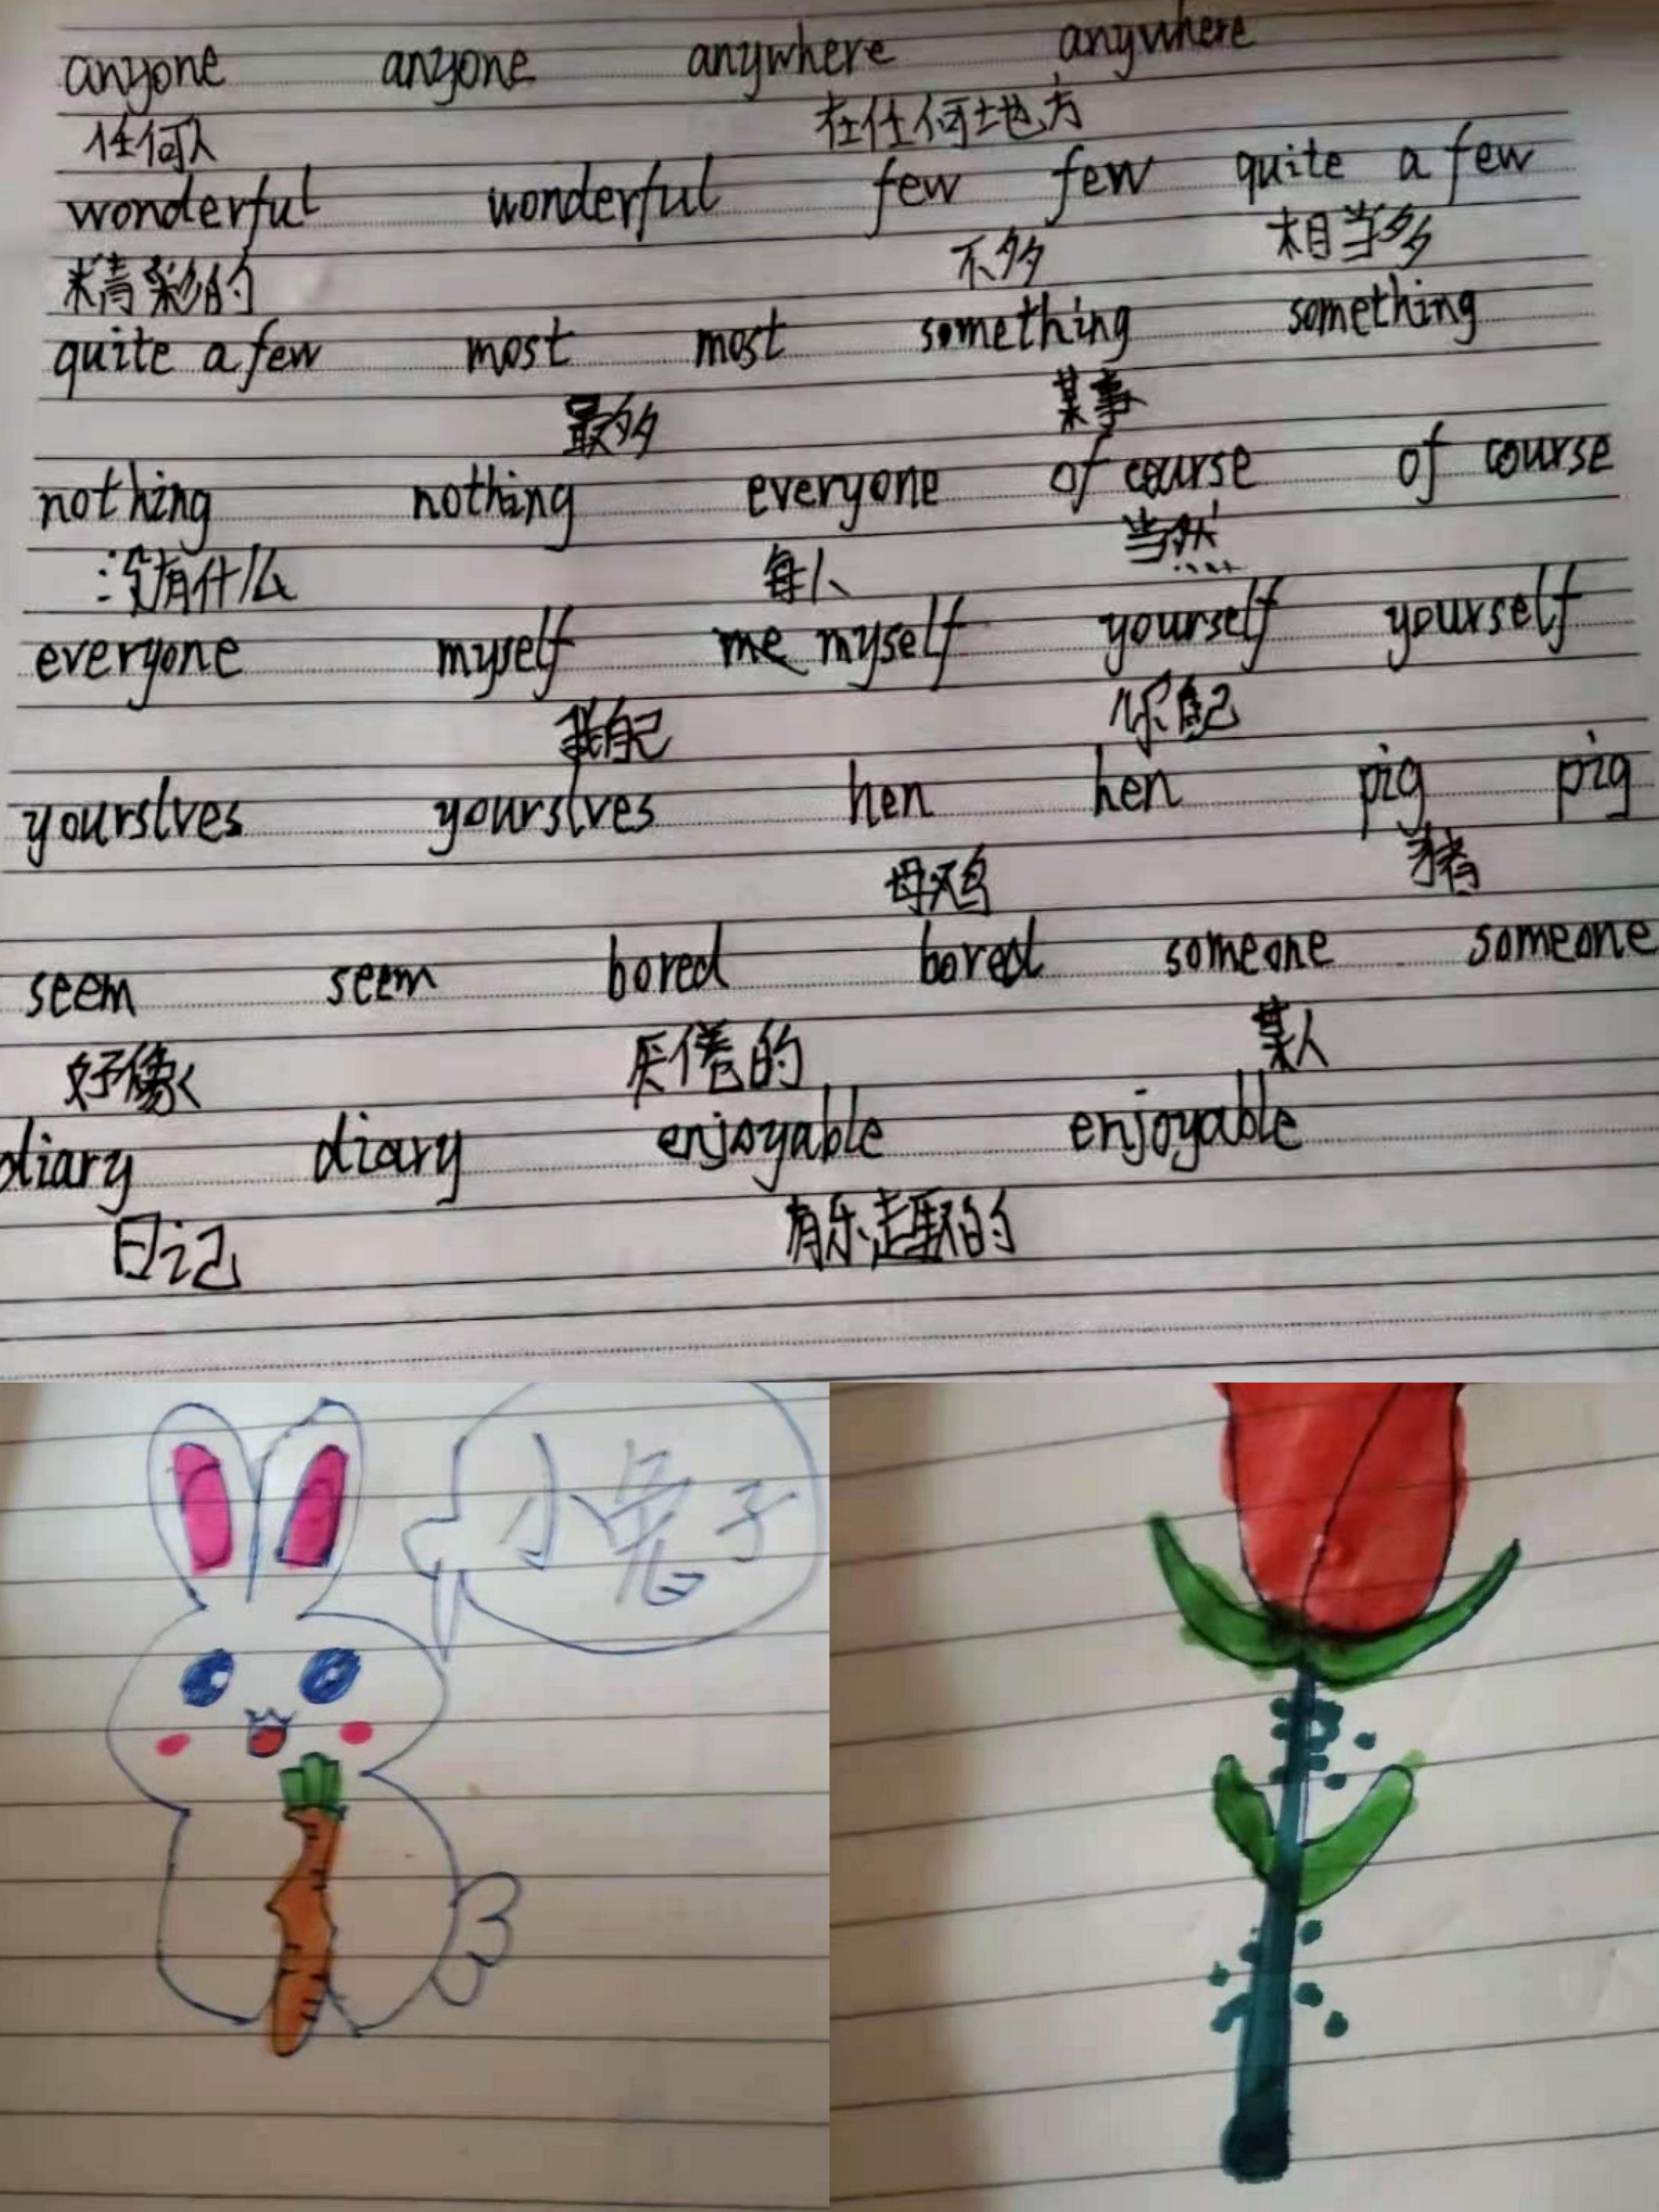 anyone anyone anywhere anywhere
任何人 在任何地方
wonderful wonderful few few quite a few
精彩的 不多 相当多
quite a few most most something something
最多 某事
nothing nothing everyone of course of course
没有什么 每人 当然
everyone myself me myself yourself yourself
我自己 你自己
yourslves yourslves hen hen pig pig
母鸡 猪
seem seem bored bored someone someone
好像 厌倦的 某人
diary diary enjoyable enjoyable
日记 有乐趣的
小兔子